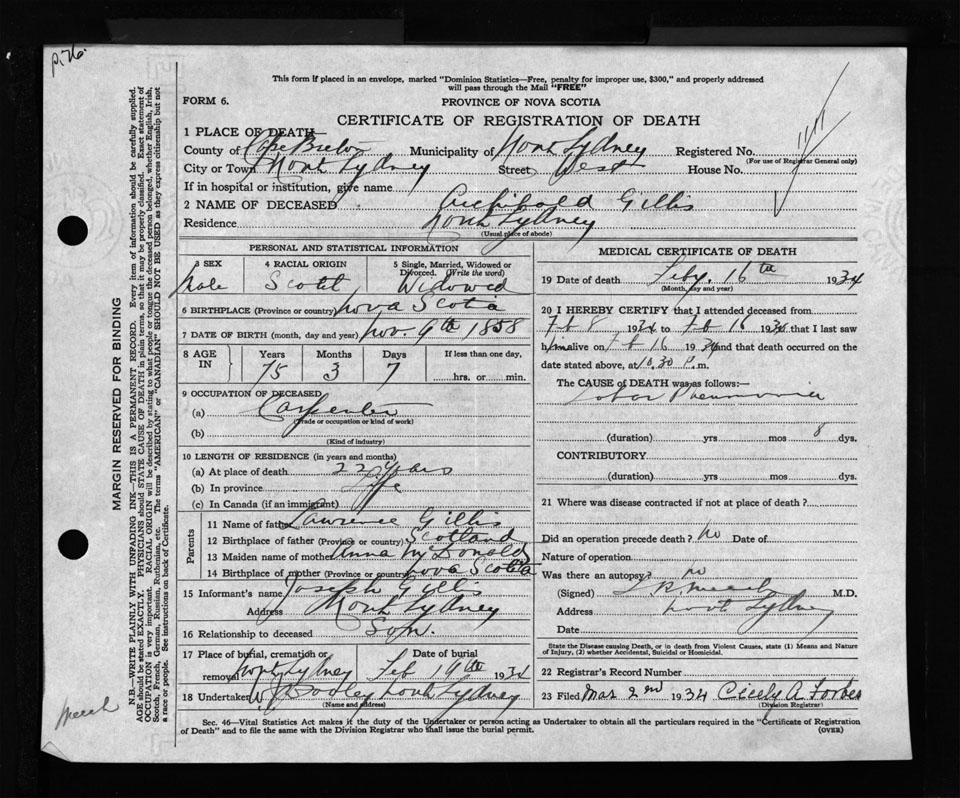 p. 76.
This form if placed in an envelope, marked "Dominion Statistics—Free, penalty for improper use, $300," and properly addressed
will pass through the Mail "FREE"
FORM 6.
PROVINCE OF NOVA SCOTIA
CERTIFICATE OF REGISTRATION OF DEATH
1 PLACE OF DEATH—
County of Cape Breton Municipality of North Sydney Registered No.
(For use of Registrar General only)
City or Town North Sydney Street West House No.
If in hospital or institution, give name
2 NAME OF DECEASED Archibald Gillis
Residence North Sydney
(Usual place of abode)
PERSONAL AND STATISTICAL INFORMATION
3 SEX 4 RACIAL ORIGIN 5 Single, Married, Widowed or
Divorced. (Write the word)
Male Scotch Widowed
6 BIRTHPLACE (Province or country) Nova Scotia
7 DATE OF BIRTH (month, day and year) Nov. 9th 1858
8 AGE IN Years Months Days If less than one day,
75 3 7 hrs. or min.
9 OCCUPATION OF DECEASED
(a) Carpenter
(Trade or occupation or kind of work)
(b)
(Kind of industry)
10 LENGTH OF RESIDENCE (in years and months)
(a) At place of death 22 years
(b) In province Life
(c) In Canada (if an immigrant)
Parents
11 Name of father Lawrence Gillis
12 Birthplace of father (Province or country) Scotland
13 Maiden name of mother Anna McDonald
14 Birthplace of mother (Province or country) Nova Scotia
15 Informant's name Joseph Gillis
Address North Sydney
16 Relationship to deceased Son.
17 Place of burial, cremation or Date of burial
removal North Sydney Feb 19th 1934
18 Undertaker Dooley North Sydney
(Name and address)
MEDICAL CERTIFICATE OF DEATH
19 Date of death Feby. 16th 1934
(Month, day and year)
20 I HEREBY CERTIFY that I attended deceased from
Feb 8 1934 to Feb 16 1934 that I last saw
him alive on Feb 16 1934 and that death occurred on the
date stated above, at 10.30 P.m.
The CAUSE OF DEATH was as follows:—
Lobar Pneumonia
(duration) yrs mos 8 dys.
CONTRIBUTORY
(duration) yrs mos dys.
21 Where was disease contracted if not at place of death?
Did an operation precede death? no Date of
Nature of operation
Was there an autopsy? no
(Signed) M.D.
Address North Sydney
Date
State the Disease causing Death, or in death from Violent Causes, state (1) Means and Nature
of Injury, (2) whether Accidental, Suicidal or Homicidal.
22 Registrar's Record Number
23 Filed Mar 2nd 1934 Cicely A Forbes
(Division Registrar)
Sec. 46—Vital Statistics Act makes it the duty of the Undertaker or person acting as Undertaker to obtain all the particulars required in the "Certificate of Registration
of Death" and to file the same with the Division Registrar who shall issue the burial permit.
(OVER)
MARGIN RESERVED FOR BINDING
N.B.—WRITE PLAINLY WITH UNFADING INK—THIS IS A PERMANENT RECORD. Every item of information should be carefully supplied.
AGE should be stated EXACTLY. PHYSICIANS should STATE CAUSE OF DEATH in plain terms, so that it may be properly classified. Exact statement of
OCCUPATION is very important. RACIAL ORIGIN will be described by stating to what people or tongue the deceased person belonged, whether English, Irish,
Scotch, French, German, Russian, Ruthenian, etc. The terms "AMERICAN" or "CANADIAN" SHOULD NOT BE USED as they express citizenship but not
a race or people. See instructions on back of Certificate.